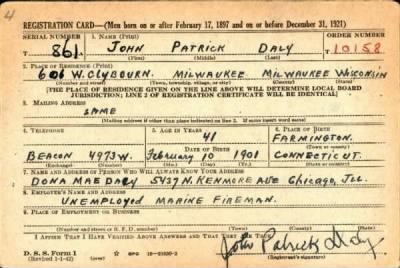 4
REGISTRATION CARD—(Men born on or after February 17, 1897 and on or before December 31, 1921)
SERIAL NUMBER 1. NAME (Print) ORDER NUMBER
861. JOHN PATRICK DALY 10158
(First) (Middle) (Last)
2. PLACE OF RESIDENCE (Print)
606 W. CLYBOURN. MILWAUKEE MILWAUKEE WISCONSIN
(Number and street) (Town, township, village, or city) (County) (State)
[THE PLACE OF RESIDENCE GIVEN ON THE LINE ABOVE WILL DETERMINE LOCAL BOARD
JURISDICTION; LINE 2 OF REGISTRATION CERTIFICATE WILL BE IDENTICAL]
3. MAILING ADDRESS
SAME
[Mailing address if other than place indicated on line 2. If same insert word same]
4. TELEPHONE 5. AGE IN YEARS 6. PLACE OF BIRTH
41 FARMINGTON.
DATE OF BIRTH (Town or county)
BEACON 4973W. February 10 1901 CONNECTICUT.
(Exchange) (Number) (Mo.) (Day) (Yr.) (State or country)
7. NAME AND ADDRESS OF PERSON WHO WILL ALWAYS KNOW YOUR ADDRESS
DONA MAE DALY 5437 N. KENMORE AVE Chicago, Ill.
8. EMPLOYER'S NAME AND ADDRESS
UNEMPLOYED MARINE FIREMAN.
9. PLACE OF EMPLOYMENT OR BUSINESS
(Number and street or R. F. D. number) (Town) (County) (State)
I AFFIRM THAT I HAVE VERIFIED ABOVE ANSWERS AND THAT THEY ARE TRUE.
John Patrick Daly
D. S. S. Form 1
(Revised 1-1-42) GPO
(Registrant's signature)